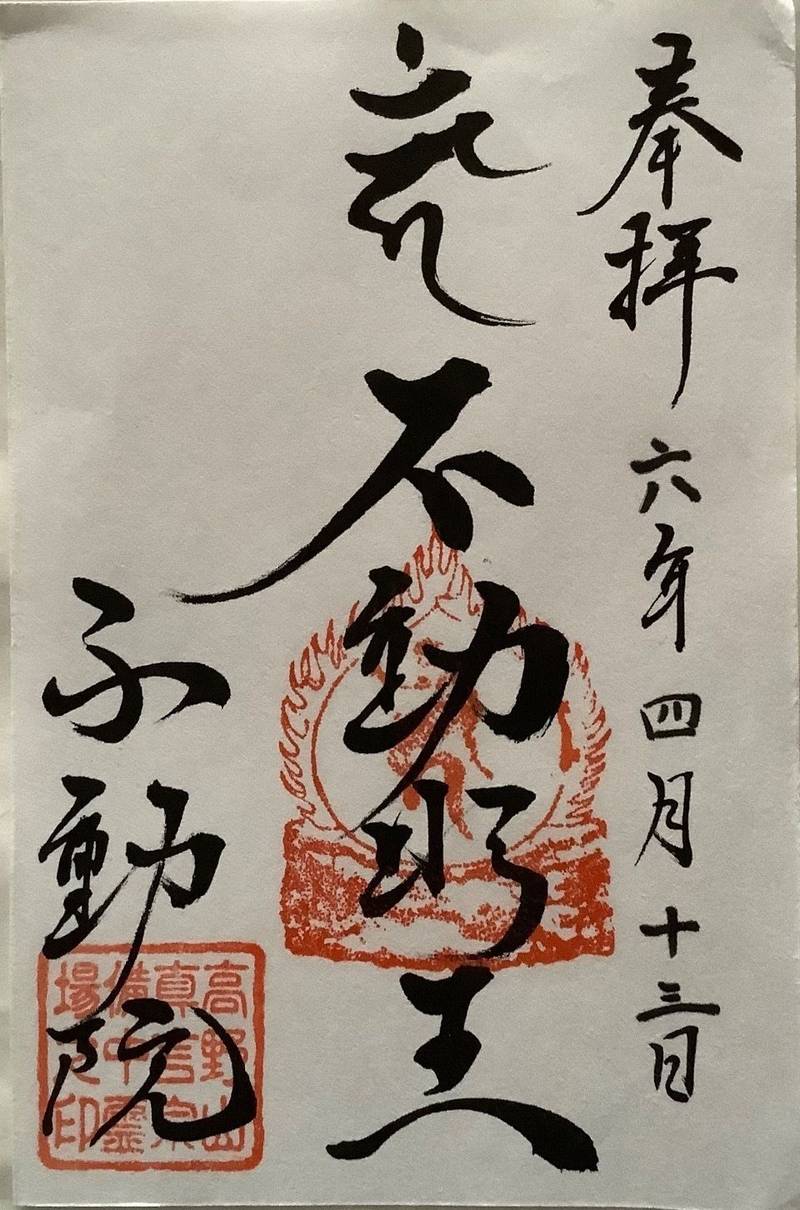 奉拝 六年四月十三日
不動明王
不動院
高野山
真言宗
備中霊
場之印